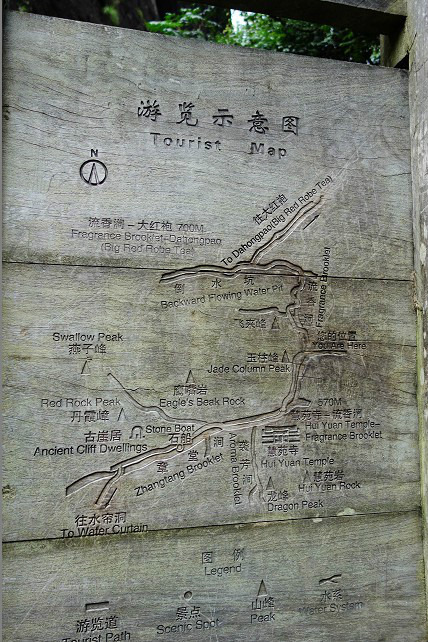 游览示意图
Tourist Map
N
往大红袍
To Dahongpao(Big Red Robe Tea)
流香涧－大红袍 700M
Fragrance Brooklet-Dahongpao
(Big Red Robe Tea)
倒水坑
Backward Flowing Water Pit
流香涧
Fragrance Brooklet
飞来峰
您的位置
You Are Here
玉柱峰
Jade Column Peak
Swallow Peak
燕子峰
鹰嘴岩
Eagle's Beak Rock
Red Rock Peak
丹霞峰
570M
慧苑寺－流香涧
Hui Yuan Temple-
Fragrance Brooklet
古崖居
Ancient Cliff Dwellings
Stone Boat
石船
章堂涧
Zhangtang Brooklet
Aroma Brooklet
慧苑寺
Hui Yuan Temple
慧苑岩
Hui Yuan Rock
龙峰
Dragon Peak
往水帘洞
To Water Curtain
图例
Legend
游览道
Tourist Path
景点
Scenic Spot
山峰
Peak
水系
Water System